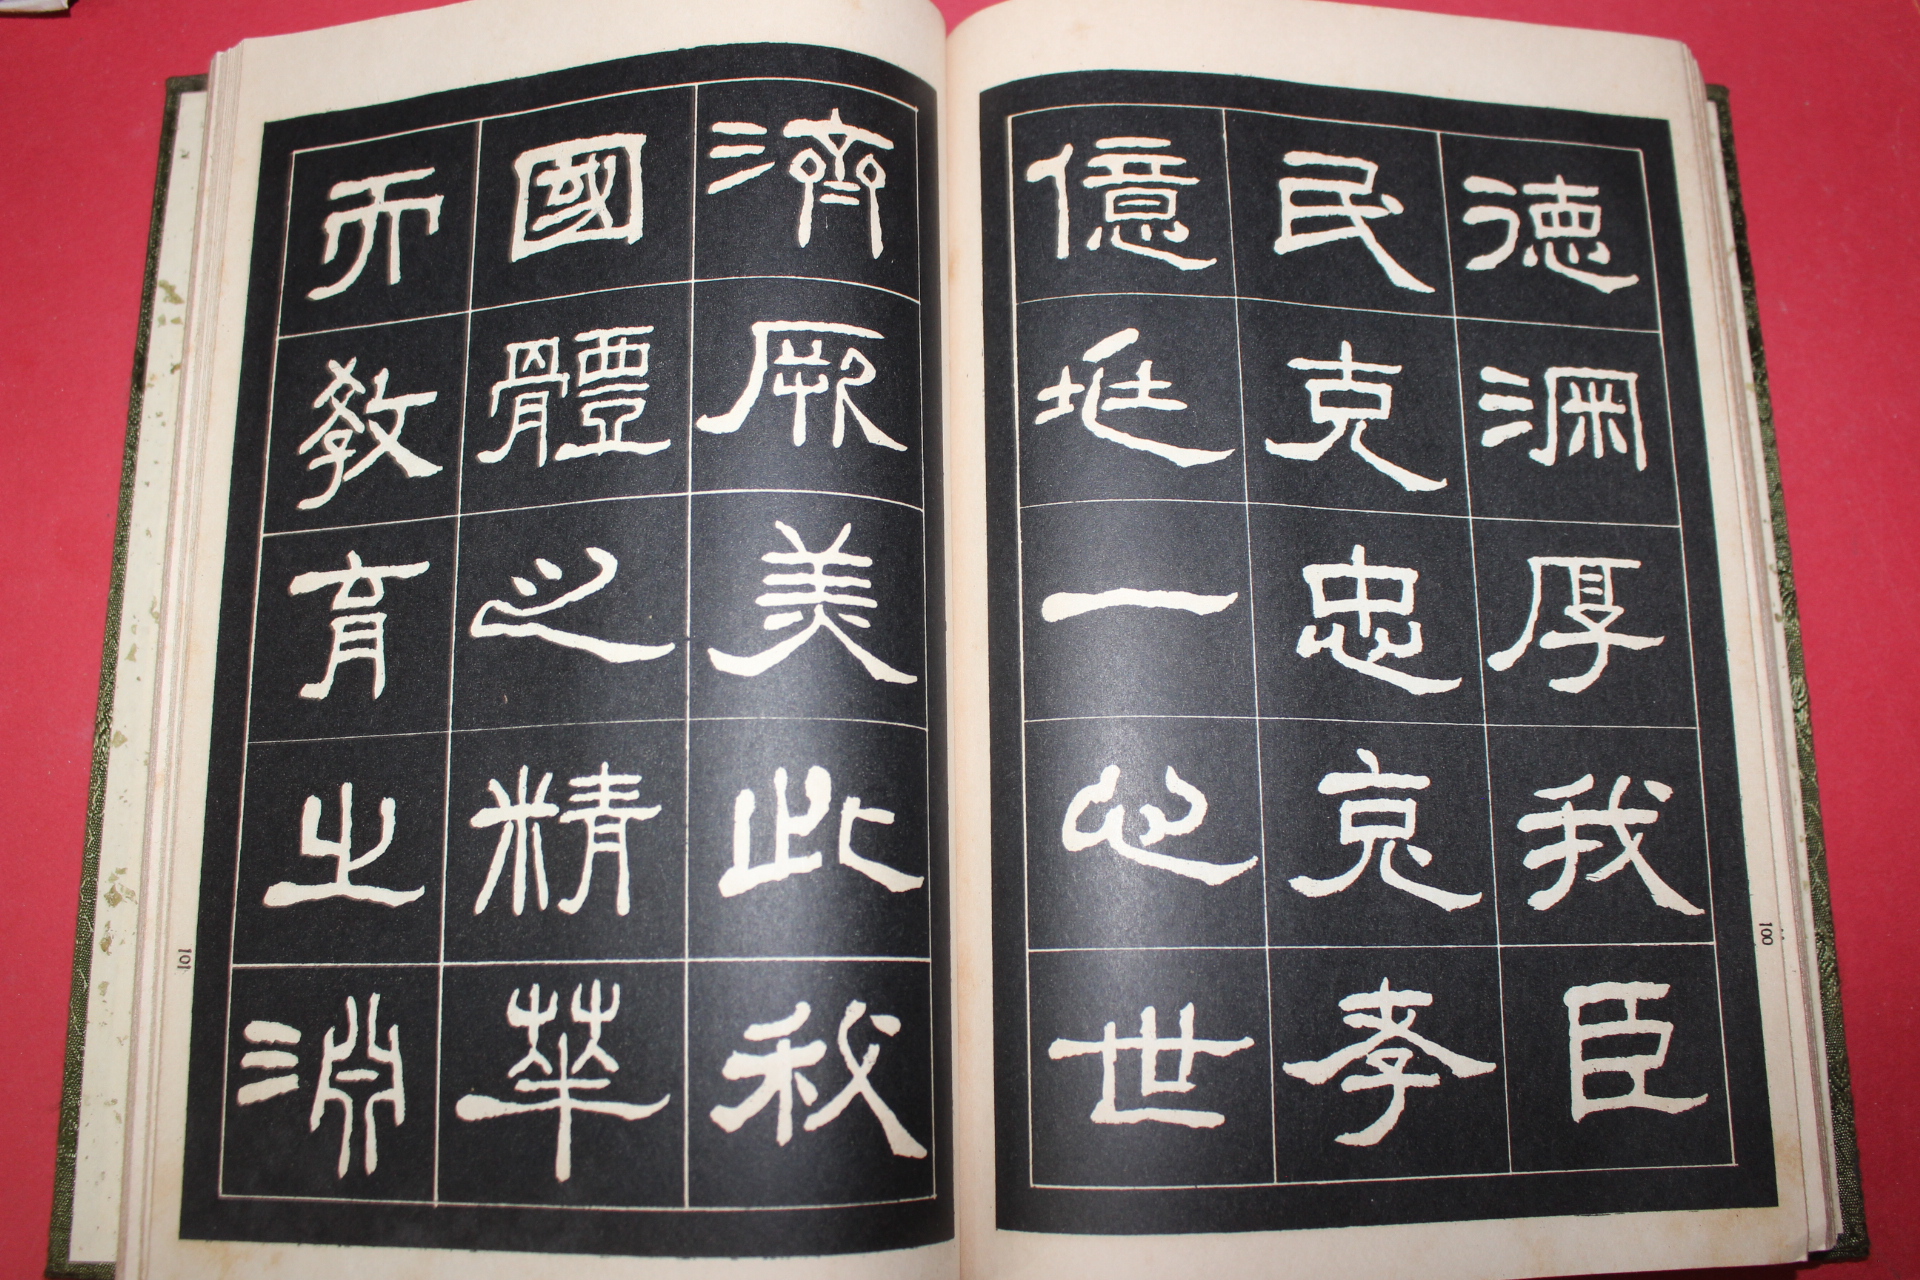 徳深厚我臣
民克忠克孝
億兆一心世
濟厥美此我
國體之精華
而教育之淵
100
101